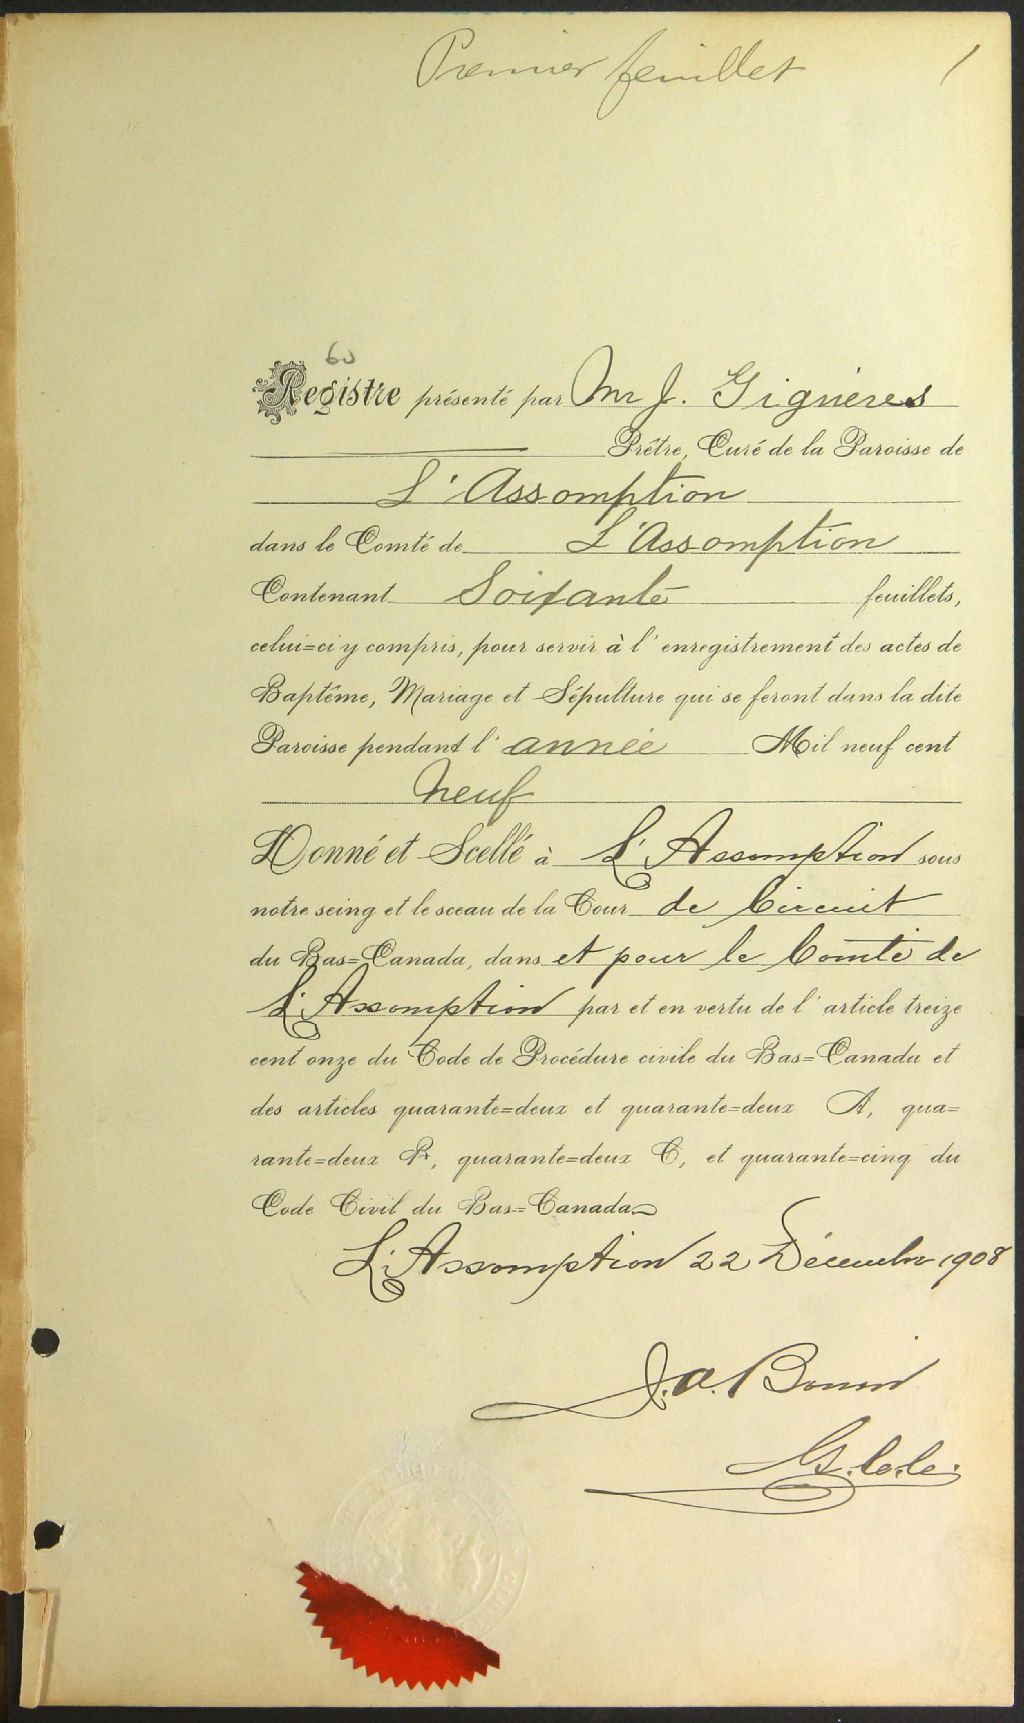 Premier feuillet 1
60
Registre présenté par Mr J. Gignères
Prêtre, Curé de la Paroisse de
L'Assomption
dans le Comté de L'Assomption
Contenant Soixante feuillets,
celui=ci y compris, pour servir à l'enregistrement des actes de
Baptême, Mariage et Sépulture qui se feront dans la dite
Paroisse pendant l'année Mil neuf cent
neuf
Donné et Scellé à L'Assomption sous
notre seing et le sceau de la Cour de Circuit
du Bas=Canada, dans et pour le Comté de
L'Assomption par et en vertu de l'article treize
cent onze du Code de Procédure civile du Bas=Canada et
des articles quarante=deux et quarante=deux A, qua=
rante=deux B, quarante=deux C, et quarante=cinq du
Code Civil du Bas=Canada.
L'Assomption 22 Décembre 1908
J. A. Bonin
G. C. C.